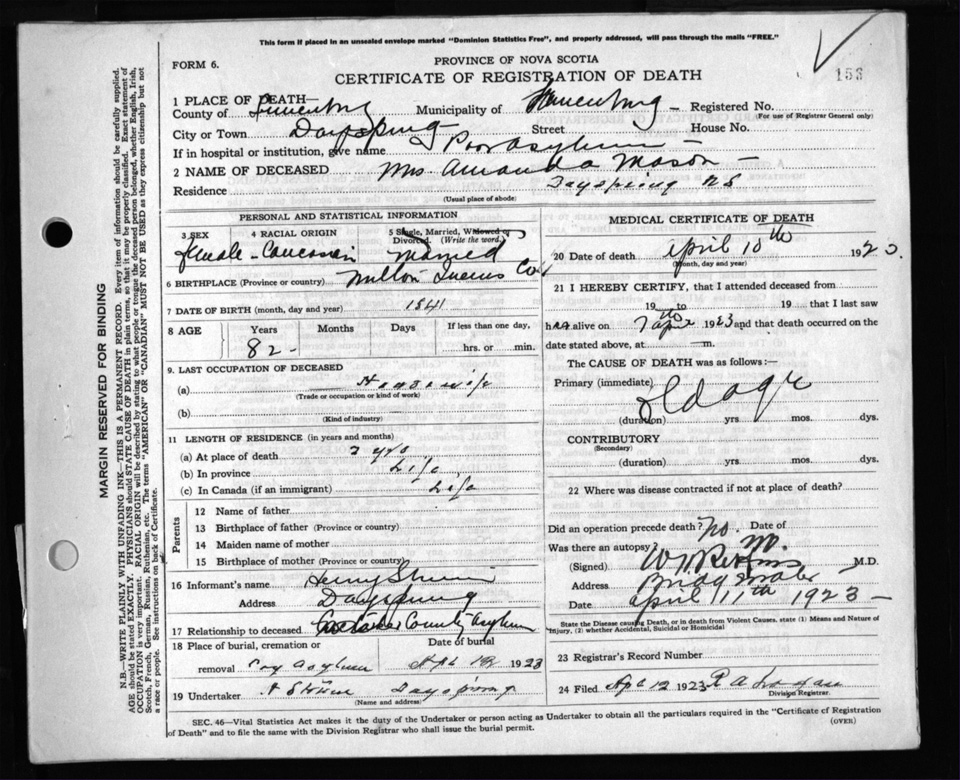 This form if placed in an unsealed envelope marked "Dominion Statistics Free", and properly addressed, will pass through the mails "FREE."
153
FORM 6.
PROVINCE OF NOVA SCOTIA
CERTIFICATE OF REGISTRATION OF DEATH
1 PLACE OF DEATH—
County of Lunenburg Municipality of Lunenburg Registered No.
(For use of Registrar General only)
City or Town Dayspring Street House No.
If in hospital or institution, give name Poor Asylum
2 NAME OF DECEASED Mrs Amanda Mason
Residence Dayspring NS
(Usual place of abode)
PERSONAL AND STATISTICAL INFORMATION
3 SEX 4 RACIAL ORIGIN 5 Single, Married, Widowed or Divorced. (Write the word.)
female Caucasian Married
6 BIRTHPLACE (Province or country) Milton Queens Co
7 DATE OF BIRTH (month, day and year) 1841
8 AGE Years Months Days If less than one day,
82 hrs. or min.
9. LAST OCCUPATION OF DECEASED
(a) Housewife
(Trade or occupation or kind of work)
(b)
(Kind of industry)
11 LENGTH OF RESIDENCE (in years and months)
(a) At place of death 2 yrs
(b) In province Life
(c) In Canada (if an immigrant) Life
Parents
12 Name of father
13 Birthplace of father (Province or country)
14 Maiden name of mother
15 Birthplace of mother (Province or country)
16 Informant's name Henry
Address Dayspring
17 Relationship to deceased County Asylum
18 Place of burial, cremation or Date of burial
removal Asylum Apl 12 1923
19 Undertaker Dayspring
(Name and address)
MEDICAL CERTIFICATE OF DEATH
20 Date of death April 10th 1923.
(Month, day and year)
21 I HEREBY CERTIFY, that I attended deceased from
19 to 19 that I last saw
her alive on 7th April 1923 and that death occurred on the
date stated above, at —m.
The CAUSE OF DEATH was as follows:—
Primary (immediate) Old age
(duration) yrs mos. dys.
CONTRIBUTORY
(Secondary)
(duration) yrs. mos. dys.
22 Where was disease contracted if not at place of death?
Did an operation precede death? No. Date of
Was there an autopsy?
(Signed) M.D.
Address Bridgewater
Date April 11th 1923
State the Disease causing Death, or in death from Violent Causes, state (1) Means and Nature of
Injury, (2) whether Accidental, Suicidal or Homicidal
23 Registrar's Record Number
24 Filed Apl 12 1923
Division Registrar.
SEC. 46—Vital Statistics Act makes it the duty of the Undertaker or person acting as Undertaker to obtain all the particulars required in the "Certificate of Registration
of Death" and to file the same with the Division Registrar who shall issue the burial permit.
(OVER)
MARGIN RESERVED FOR BINDING
N.B.—WRITE PLAINLY WITH UNFADING INK—THIS IS A PERMANENT RECORD. Every item of information should be carefully supplied.
AGE should be stated EXACTLY. PHYSICIANS should STATE CAUSE OF DEATH in plain terms, so that it may be properly classified. Exact statement of
OCCUPATION is very important. RACIAL ORIGIN will be described by stating to what people or tongue the deceased person belonged, whether English, Irish,
Scotch, French, German, Russian, Ruthenian, etc. The terms "AMERICAN" OR "CANADIAN" MUST NOT BE USED as they express citizenship but not
a race or people. See instructions on back of Certificate.